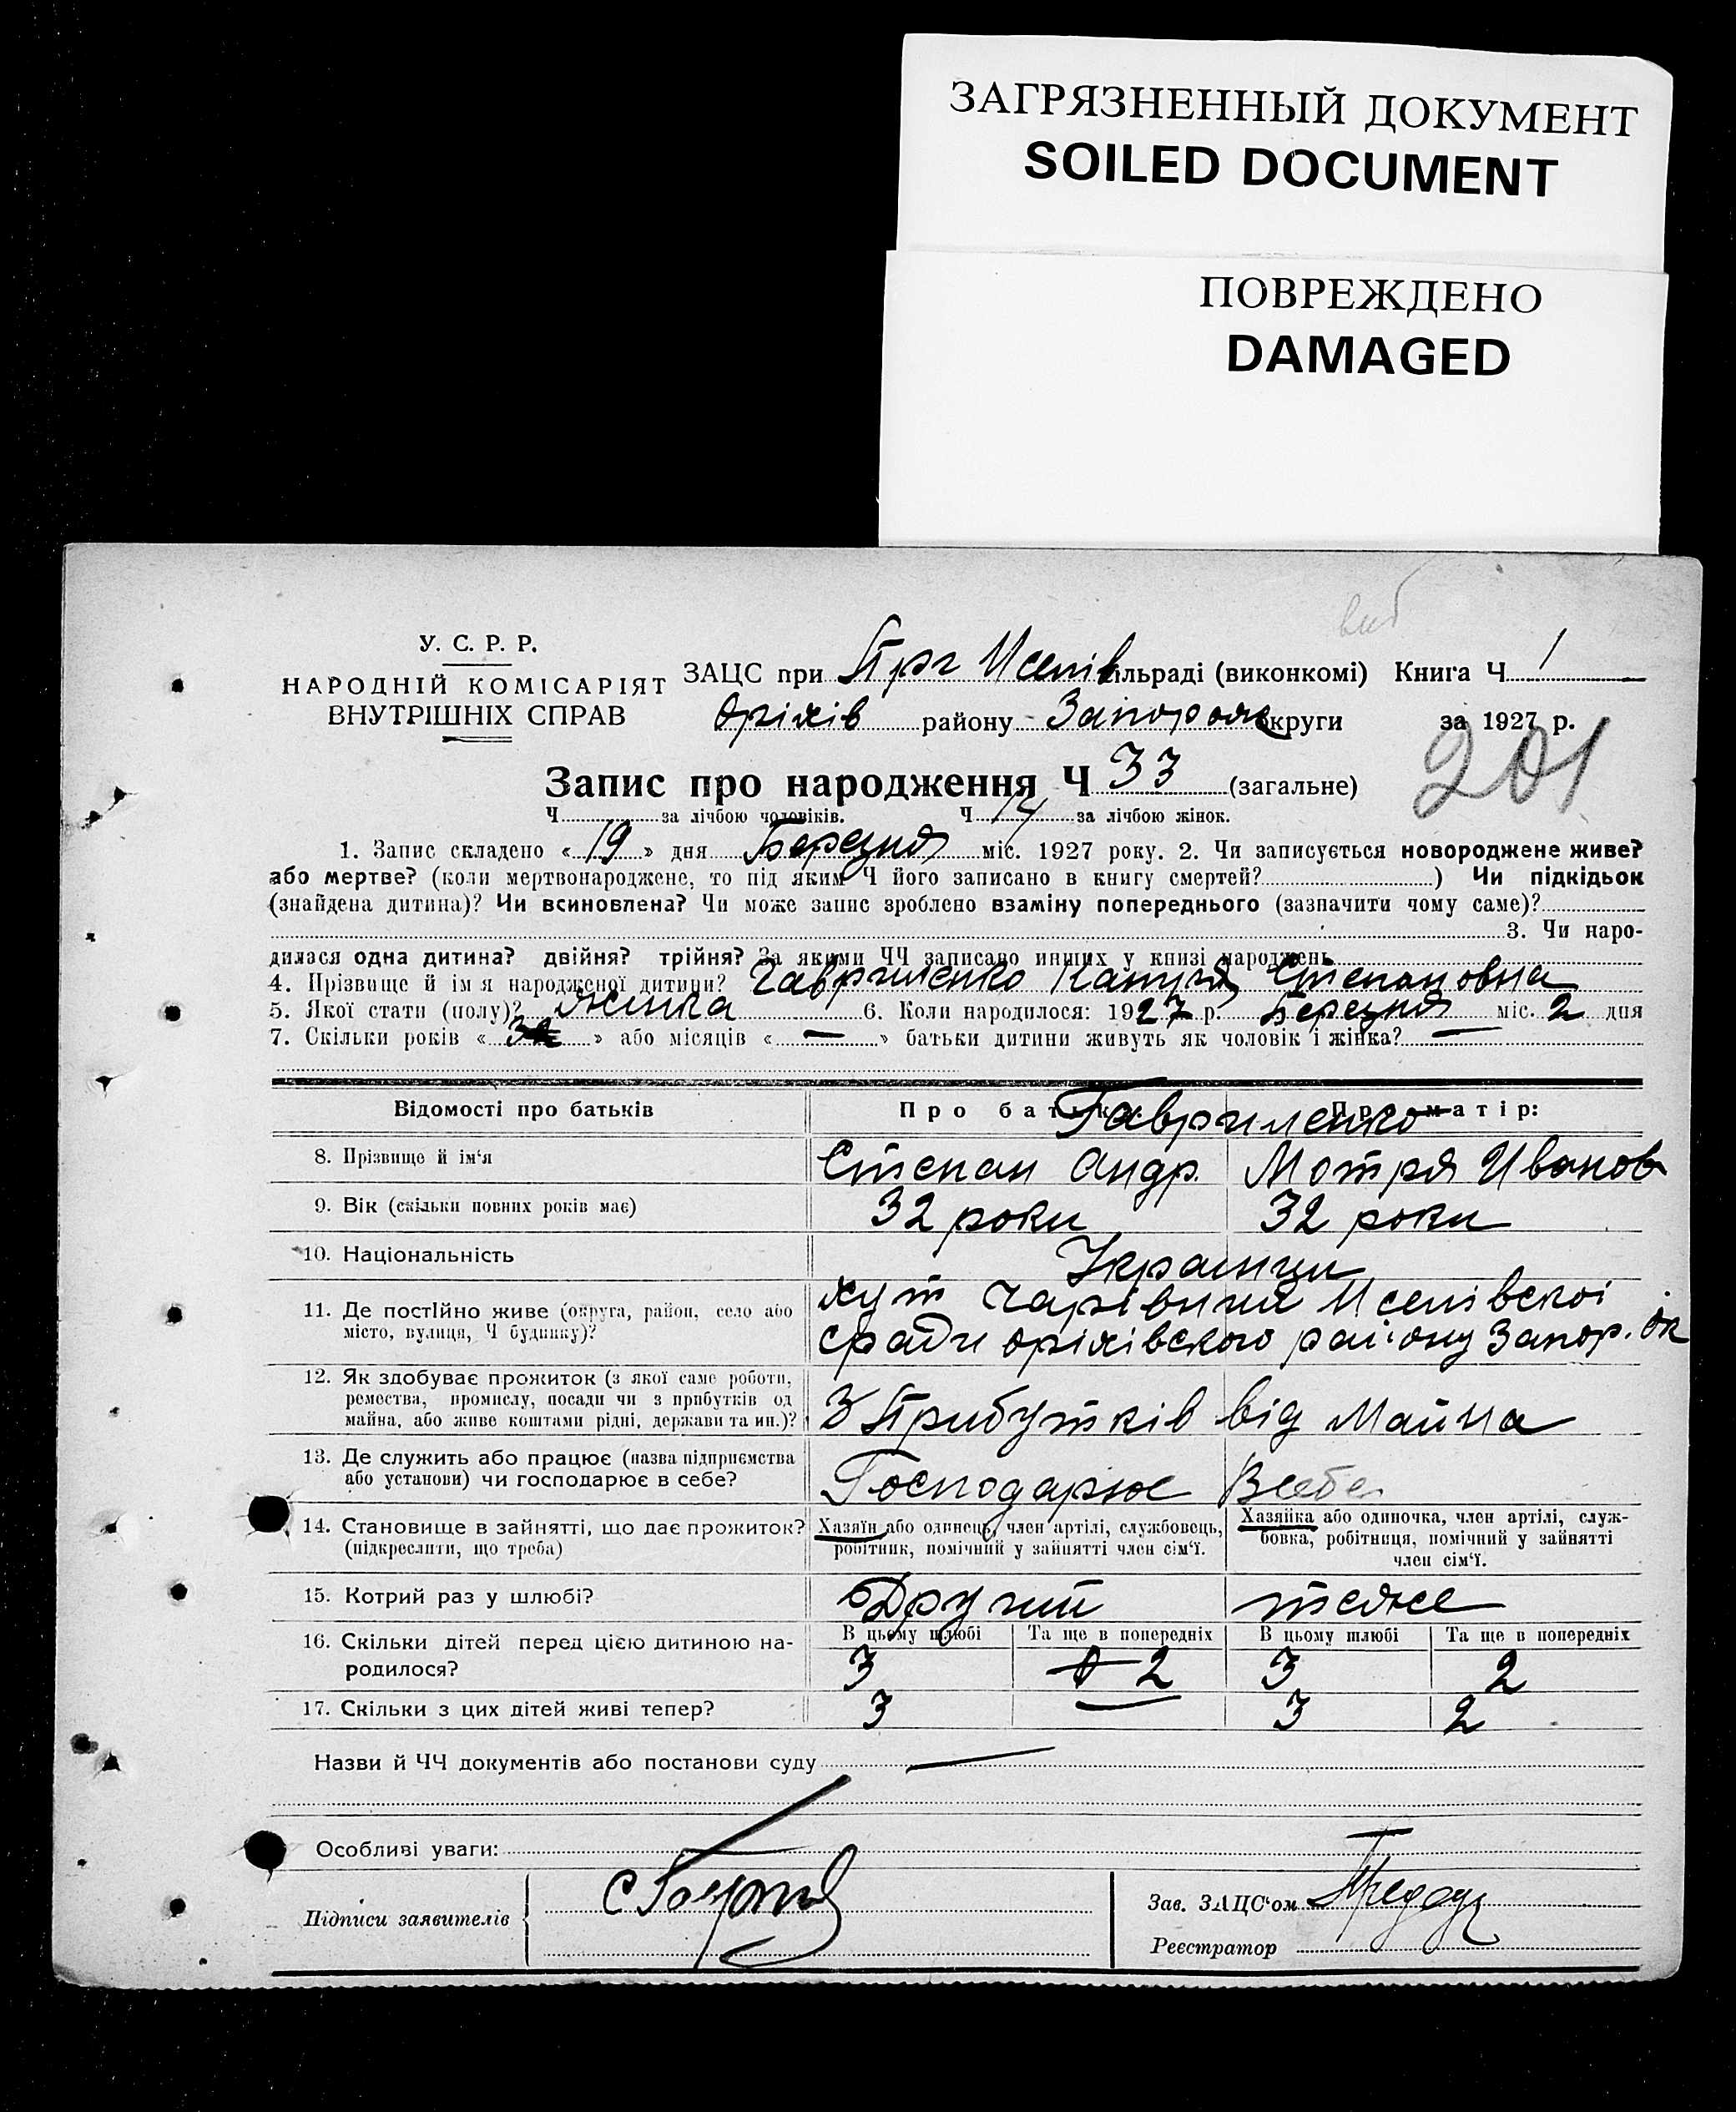 ЗАГРЯЗНЕННЫЙ ДОКУМЕНТ
SOILED DOCUMENT
ПОВРЕЖДЕНО
DAMAGED
У. С. Р. Р.
НАРОДНІЙ КОМІСАРІЯТ
ВНУТРІШНІХ СПРАВ
ЗАЦС при Исепів ільраді (виконкомі) Книга Ч 1
Оріхів району Запорож округи за 1927 р.
201
Запис про народження Ч 33 (загальне)
Ч за лічбою чоловіків. Ч 14 за лічбою жінок.
1. Запис складено « 19 » дня Березня міс. 1927 року. 2. Чи записується новороджене живе?
або мертве? (коли мертвонароджене, то під яким Ч його записано в книгу смертей? ) Чи підкідьок
(знайдена дитина)? Чи всиновлена? Чи може запис зроблено взаміну попереднього (зазначити чому саме)?
3. Чи наро-
дилася одна дитина? двійня? трійня? За якими ЧЧ записано инших у книзі народжень
4. Прізвище й ім я народженої дитини? Гавриленко Степановна
5. Якої стати (полу)? жінка 6. Коли народилося: 1927 р. Березня міс. 2 дня
7. Скільки років « » або місяців « — » батьки дитини живуть як чоловік і жінка? —
Відомості про батьків Про батька: Про матір:
Гавриленко
8. Прізвище й ім‘я Степан Андр. Мотря Иванов
9. Вік (скільки повних років має) 32 роки 32 роки
10. Національність Украинци
11. Де постійно живе (округа, район, село або
місто, вулиця, Ч будинку)?
хут Чарівний Исепівскоі
сради оріхівского раіону Запор. ок
12. Як здобуває прожиток (з якої саме роботи,
ремества, промислу, посади чи з прибутків од
майна, або живе коштами рідні, держави та ин.)?
З Прибутків від Майна
13. Де служить або працює (назва підприємства
або установи) чи господарює в себе?
Господарює Всебе
14. Становище в зайнятті, що дає прожиток?
(підкреслити, що треба)
Хазяїн або одинець, член артілі, службовець,
робітник, помічний у зайнятті член сім‘ї.
Хазяйка або одиночка, член артілі, служ-
бовка, робітниця, помічний у зайнятті
член сім‘ї.
15. Котрий раз у шлюбі? Другий теже
16. Скільки дітей перед цією дитиною на-
родилося?
В цьому шлюбі Та ще в попередніх В цьому шлюбі Та ще в попередніх
3 2 3 2
17. Скільки з цих дітей живі тепер? 3 — 3 2
Назви й ЧЧ документів або постанови суду —
Особливі уваги:
Підписи заявителів
Зав. ЗАЦС‘ом
Реєстратор